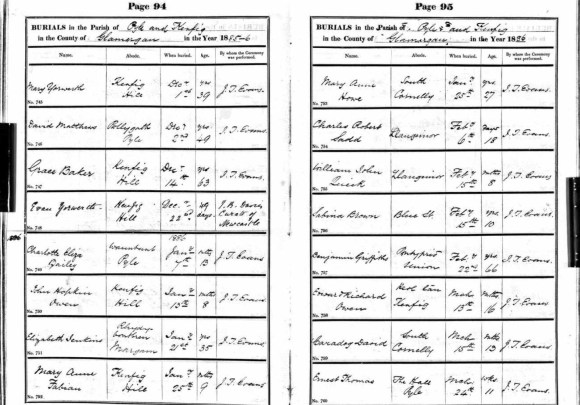 Page 94
BURIALS in the Parish of Pyle and Kenfig
in the County of Glamorgan in the Year 1885-6
Name. Abode. When buried. Age. By whom the Ceremony was performed.
Mary Yorwerth Kenfig Hill Decr 1st yrs 39 J. T. Evans.
No. 745
David Matthews Pyle Decr 2nd yrs 49 J. T. Evans.
No. 746
Grace Baker Kenfig Hill Decr 14th yrs 63 J. T. Evans.
No. 747
Evan Yorwerth Kenfig Hill Decr 22nd 49 days Curate of Newcastle
No. 748
1886
Charlotte Eliza Bailey Pyle Janr 7th mths 13 J. T. Evans
No. 749
John Hopkin Owen Kenfig Hill Janr 13th mths 8 J. T. Evans
No. 750
Elizabeth Jenkins Margam Janr 21st yrs 35 J. T. Evans
No. 751
Mary Anne Fabian Kenfig Hill Janr 25th mths 9 J. T. Evans
No. 752
Page 95
BURIALS in the Parish of Pyle and Kenfig
in the County of Glamorgan in the Year 1886
Name. Abode. When buried. Age. By whom the Ceremony was performed.
Mary Anne Howe South Cornelly Janr 25th yrs 27 J. T. Evans.
No. 753
Charles Robert Llangeinor Feby 6th 18 J. T. Evans.
No. 754
William John Quick Llangeinor Feby 15th mths 8 J. T. Evans
No. 755
Sabina Brown Blue St. Feby 15th yrs 10 J. T. Evans.
No. 756
Benjamin Griffiths Pontypridd Union Feby 22nd yrs 66 J. T. Evans
No. 757
Richard Owen Kenfig Mch 13th mths 16 J. T. Evans
No. 758
Caradog David South Cornelly Mch 15th mths 13 J. T. Evans
No. 759
Ernest Thomas The Hall Pyle Mch 24th wks 11 J. T. Evans
No. 760